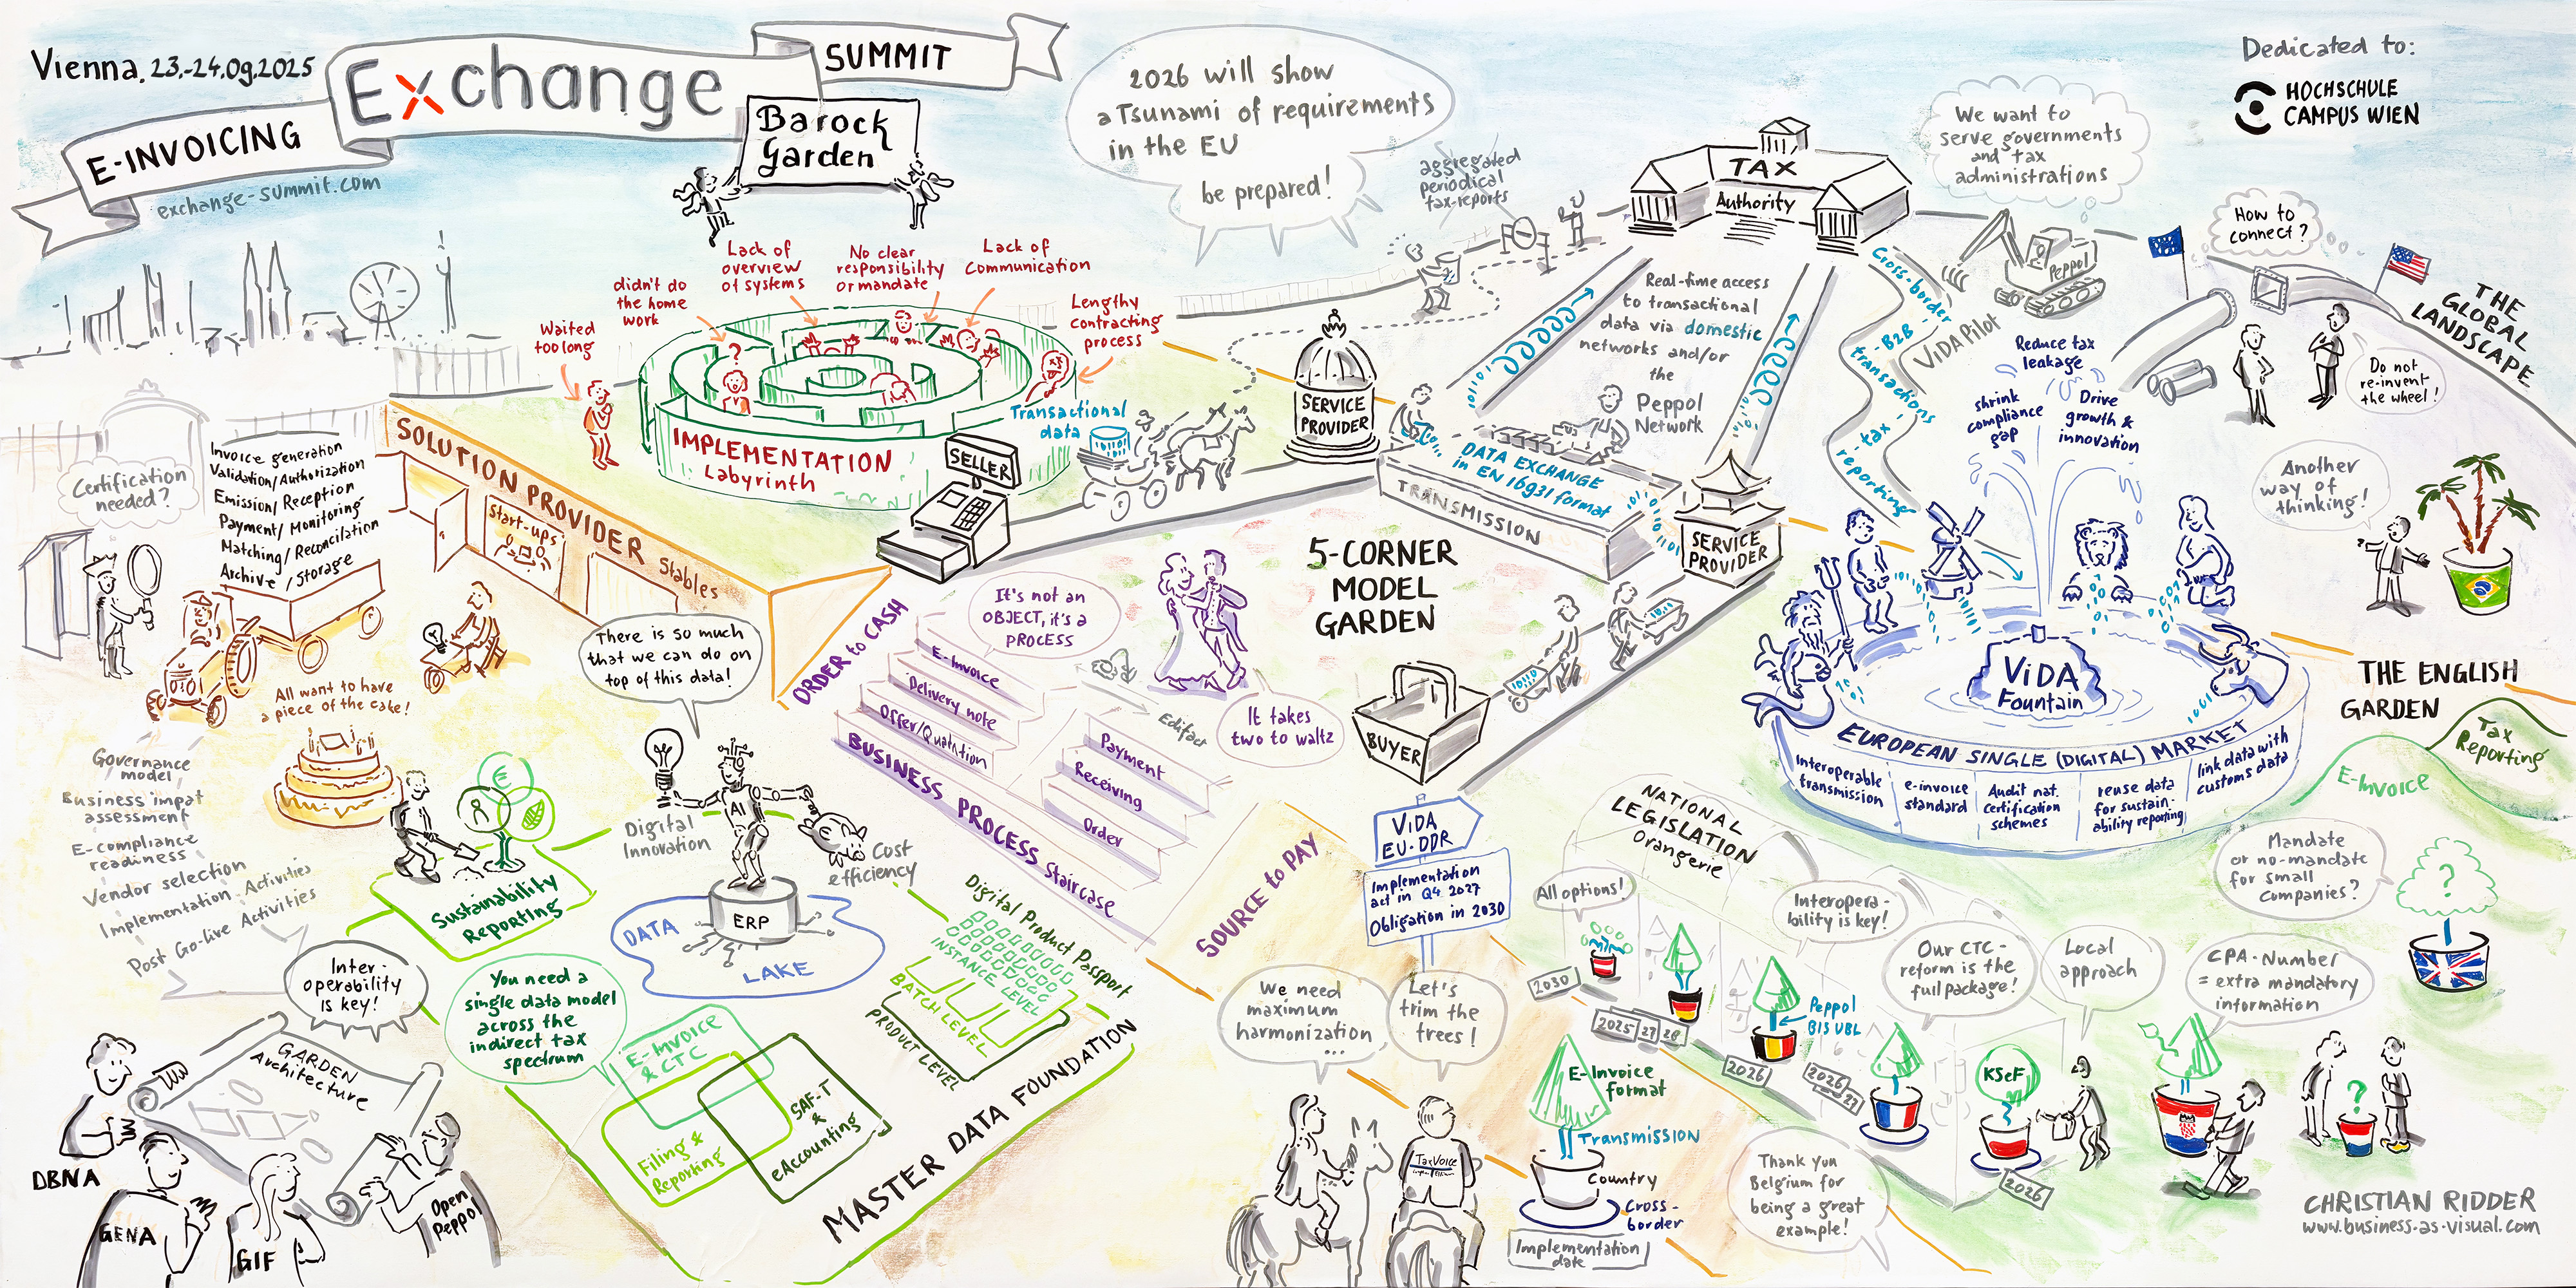 Vienna, 23.-24.09.2025
E-INVOICING
Exchange
SUMMIT
exchange-summit.com
Barock
Garden
2026 will show
a Tsunami of requirements
in the EU
be prepared!
aggregated
periodical
tax-reports
TAX
Authority
We want to
serve governments
and tax
administrations
Dedicated to:
HOCHSCHULE
CAMPUS WIEN
How to
connect?
Peppol
ViDA Pilot
THE
GLOBAL
LANDSCAPE
Do not
re-invent
the wheel!
Another
way of
thinking!
Waited
too long
didn't do
the home
work
Lack of
overview
of systems
No clear
responsibility
or mandate
Lack of
Communication
Lengthy
contracting
process
?
IMPLEMENTATION
Labyrinth
Transactional
data
SELLER
SERVICE
PROVIDER
Real-time access
to transactional
data via domestic
networks and/or
the
Peppol
Network
DATA EXCHANGE
in EN 16931 format
TRANSMISSION
SERVICE
PROVIDER
Cross-border
- B2B -
transactions
- tax -
reporting
Reduce tax
leakage
shrink
compliance
gap
Drive
growth &
innovation
ViDA
Fountain
EUROPEAN SINGLE (DIGITAL) MARKET
Interoperable
transmission
e-invoice
standard
Audit nat.
Certification
schemes
reuse data
for sustain-
ability reporting
link data with
customs data
THE ENGLISH
GARDEN
Tax
Reporting
E-Invoice
Mandate
or no-mandate
for small
companies?
?
Certification
needed?
Invoice generation
Validation/Authorization
Emission/Reception
Payment/Monitoring
Matching/Reconcilation
Archive/Storage
SOLUTION PROVIDER Stables
Start-ups
All want to have
a piece of the cake!
There is so much
that we can do on
top of this data!
Governance
model
Business impat
assessment
E-compliance
readiness
Vendor selection
Implementation Activities
Post Go-live Activities
ORDER to CASH
It's not an
OBJECT, it's a
PROCESS
E-Invoice
Delivery note
Offer/Quatation
BUSINESS PROCESS Staircase
Payment
Receiving
Order
Edifact
It takes
two to waltz
SOURCE to PAY
5-CORNER
MODEL
GARDEN
BUYER
AI
Digital
Innovation
Cost
efficiency
ERP
DATA
LAKE
€
Sustainability
Reporting
Inter-
operability
is key!
GARDEN
Architecture
DBNA
GENA
GIF
Open
Peppol
You need a
single data model
across the
indirect tax
spectrum
E-Invoice
& CTC
Filing &
Reporting
SAF-T
&
eAccounting
Digital Product Passport
INSTANCE LEVEL
BATCH LEVEL
PRODUCT LEVEL
MASTER DATA FOUNDATION
ViDA
EU-DDR
Implementation
act in Q4 2027
Obligation in 2030
We need
maximum
harmonization
...
Let's
trim the
trees!
TaxVoice
NATIONAL
LEGISLATION
Orangerie
All options!
2030
2025
27
28
Interopera-
bility is key!
Peppol
BIS UBL
2026
Our CTC-
reform is the
full package!
2026
27
Local
approach
KSeF
2026
CPA-Number
= extra mandatory
information
?
E-Invoice
format
Transmission
Country
Cross-
border
Implementation
date
Thank you
Belgium for
being a great
example!
CHRISTIAN RIDDER
www.business-as-visual.com